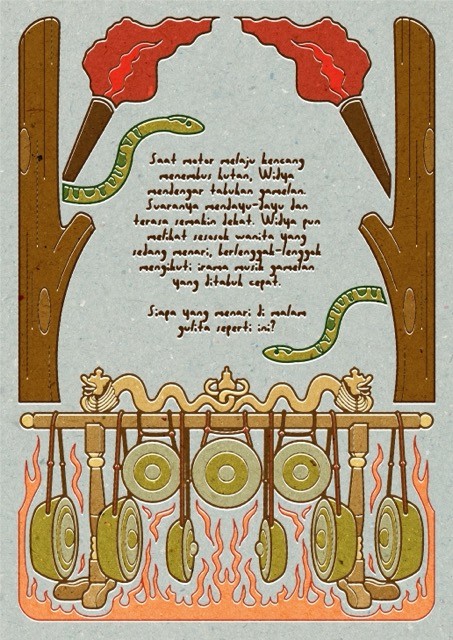 Saat motor melaju kencang
menembus hutan, Widya
mendengar tabuhan gamelan.
Suaranya mendayu-dayu dan
terasa semakin dekat. Widya pun
melihat sesosok wanita yang
sedang menari, berlenggak-lenggok
mengikuti irama musik gamelan
yang ditabuh cepat.
Siapa yang menari di malam
gulita seperti ini?